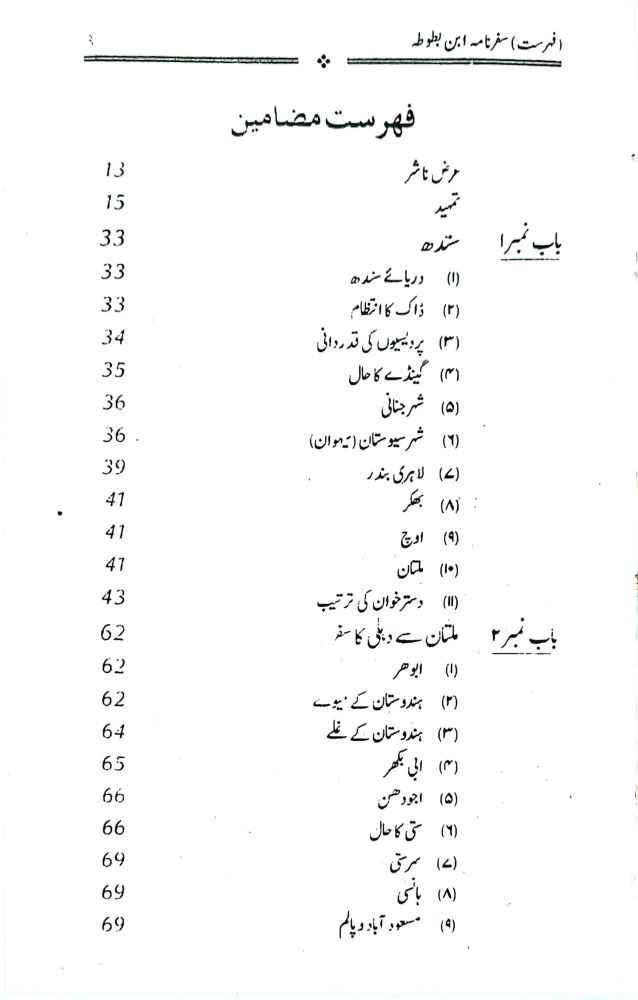 (فہرست) سفرنامہ ابن بطوطہ
فہرست مضامین
عرض ناشر 13
تمہید 15
باب نمبر ۱ سندھ 33
(۱) دریائے سندھ 33
(۲) ڈاک کا انتظام 33
(۳) پردیسیوں کی قدردانی 34
(۴) گینڈے کا حال 35
(۵) شہر جنانی 36
(۶) شہر سیوستان (سہوان) 36
(۷) لاہری بندر 39
(۸) بھکر 41
(۹) اوچ 41
(۱۰) ملتان 41
(۱۱) دسترخوان کی ترتیب 43
باب نمبر ۲ ملتان سے دہلی کا سفر 62
(۱) ابوھر 62
(۲) ہندوستان کے میوے 62
(۳) ہندوستان کے غلے 64
(۴) ابی بکھر 65
(۵) اجودھن 66
(۶) ستی کا حال 66
(۷) سرستی 69
(۸) ہانسی 69
(۹) مسعود آباد و پالم 69